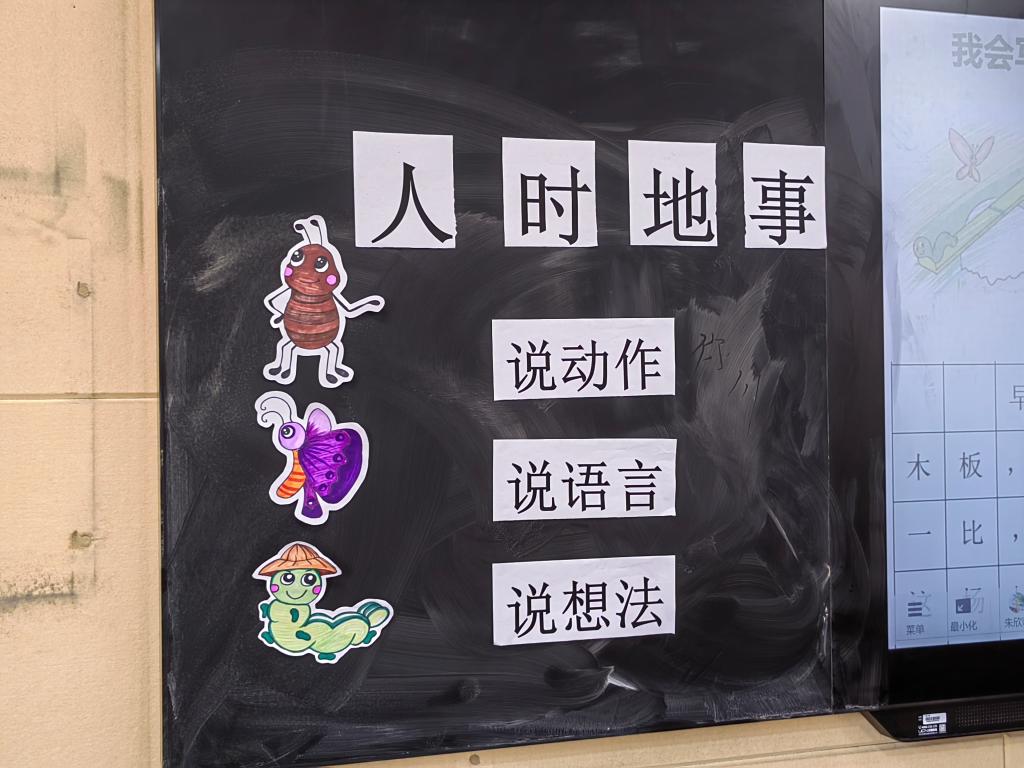 人 时 地 事
说动作
你
说语言
说想法
我会写
早
木 板 ，
一 比 ，
这 场
菜单 最小化 朱欣